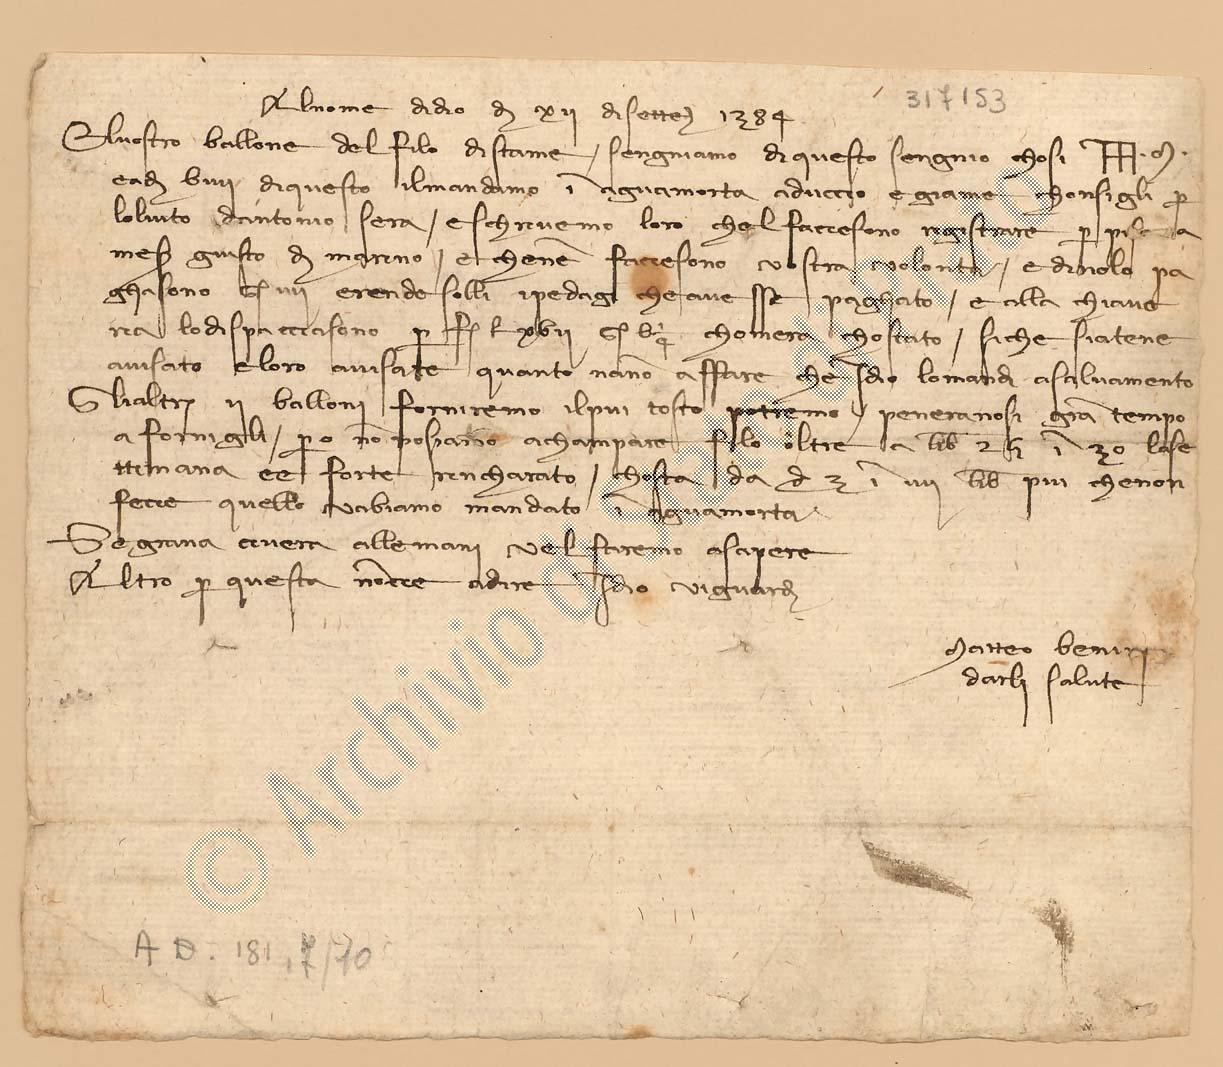 Al nome di dio dì xii di sette 1384
317153
El vostro ballone del filo di stame / sengniamo di questo sengnio chosi
e a dì viiii di questo il mandamo i aguamorta a duccio e giame chonsigli p
lo luito d'antonio sera / e schrivemo loro che 'l faciesono registrare p
mes giusto di mareno / e che ne faciesono vostra volontà / e di nolo pa
ghasono viiii e rendesolli i pedagi che avesse paghato / e alla chiave
ria lo dispacciasono p xvii chom'era chostato / siche siatene
avisato e loro avisate quanto n'ano affare che Idio lo mandi a salvamento
Gli altri ii balloni forniremo il più tosto potremo / peneranosi gra tempo
a fornigli / p o no posiamo achampare filo oltre a lib 25 i 30 la se
ttimana ed e forte rincharato / chosta da d 3 i iiii lib più che non
fecie quello v'abiamo mandato i aguamorta
Se grana avera alle mani ve 'l faremo a sapere
Altro p questa no ci e a dire Idio vi guardi
Matteo benini
d'arli salute
A D. 181, 7/70
© Archivio di Stato di Prato